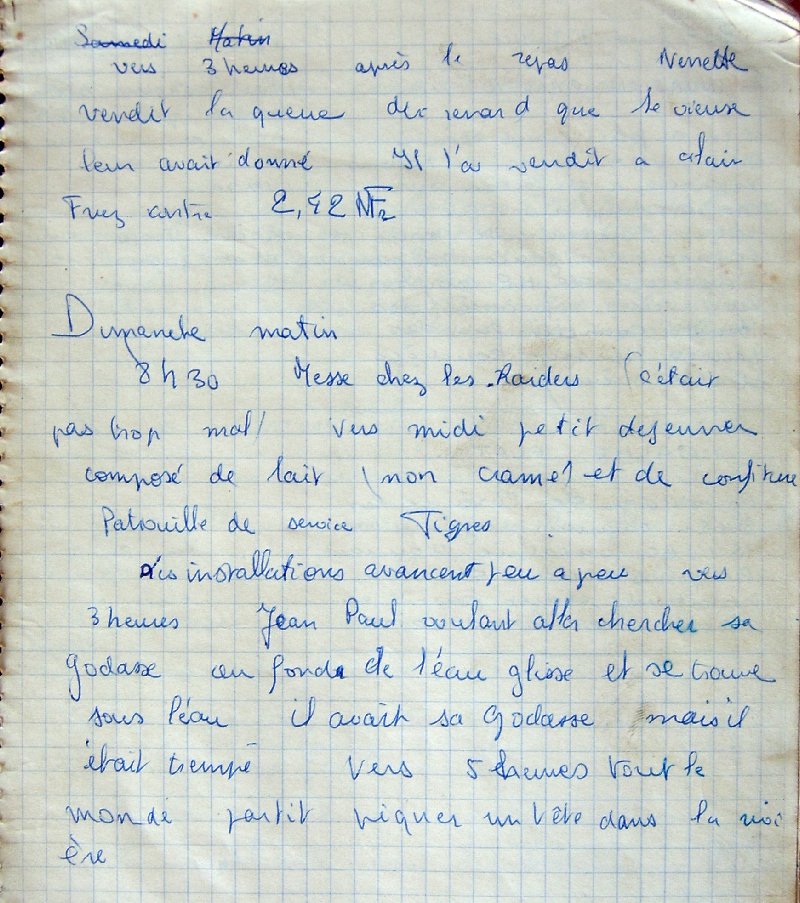 Samedi Matin
vers 3 heures après le repas Nenette
vendit la queue du renard que le vieux
leur avait donné Il l'a vendit a alain
Frez contre 2,42 NF
Dimanche matin
8h30 Messe chez les Raiders (c'était
pas trop mal) vers midi petit dejeuner
composé de lait (non cramé) et de confiture
Patrouille de service Tigres
Les installations avancent peu a peu vers
3 heures Jean Paul voulant aller chercher sa
Godasse au fond de l'éau glisse et se trouve
sous l'éau il avait sa Godasse mais il
était trempé vers 5 heures tout le
monde partit piquer un tête dans la rivi
ère